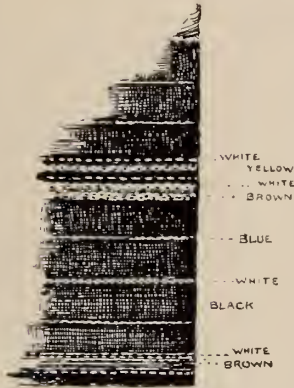 WHITE
YELLOW
WHITE
BROWN
BLUE
WHITE
BLACK
WHITE
BROWN